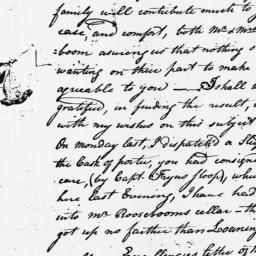 family will contribute much to y
ease, and comfort, both Mr. & Mrs.
=boom assuring us that nothing s
wanting on their part to make
agreable to you — I shall
gratified, in finding the result,
with my wishes on this subject
On monday last, I dispatch'd a Slo
the Cask of porter, you had consigne
care, (by Capt. Fryers sloop), whi
here last Evening, I have had
into Mr. Roosebooms cellar — th
got up no farther than Loonenn
letter of